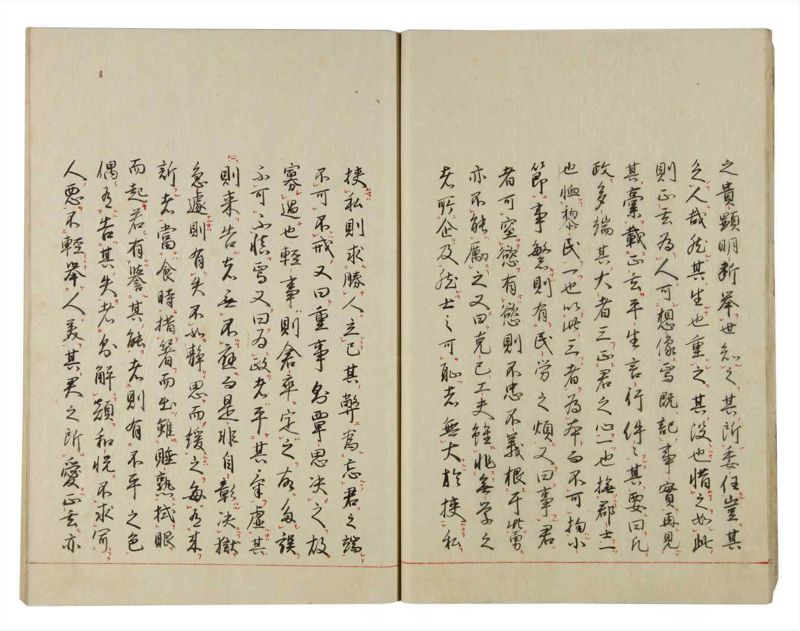 之貴顕明断挙世知之其所委任豈其
乏人哉然其生也重之其没也惜之如此
則正玄為人可想像焉既記事実再見
其藁載正玄平生言行件々其要曰凡
政多端其大者三正君之心一也撫郡士一
也恤黎民一也以此三者為本而不可拘小
節事繁則有民労之煩又曰事君
者可窒慾有慾則不忠不義根于此勇
亦不能励之又曰克己工夫雖非無学之
者所企及然士之可恥者無大於挟私
挟私則求勝人立己其弊為忘君之端
不可不戒又曰重事勿単思決之故
寡過也軽事則倉卒定之故多誤
不可不慎焉又曰為政者平其気虚其
則来告者無不応而是非自彰决獄
急遽則有失不如静思而緩之毎有来
訴者当食時措箸而出雖睡熟拭眼
而起若有誉其能者則有不平之色
偶有告其失者則解顔和悦不求
人悪不軽挙人美其君之所愛正玄亦